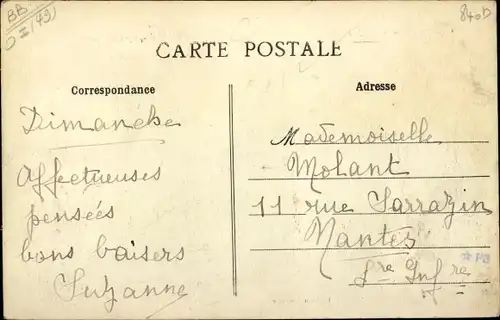 BB
(49)
840D
CARTE POSTALE
Correspondance
Dimanche
Affectueuses
pensées
bons baisers
Suzanne
Adresse
Mademoiselle
Molant
11 rue Sarrazin
Nantes
Lre Infre